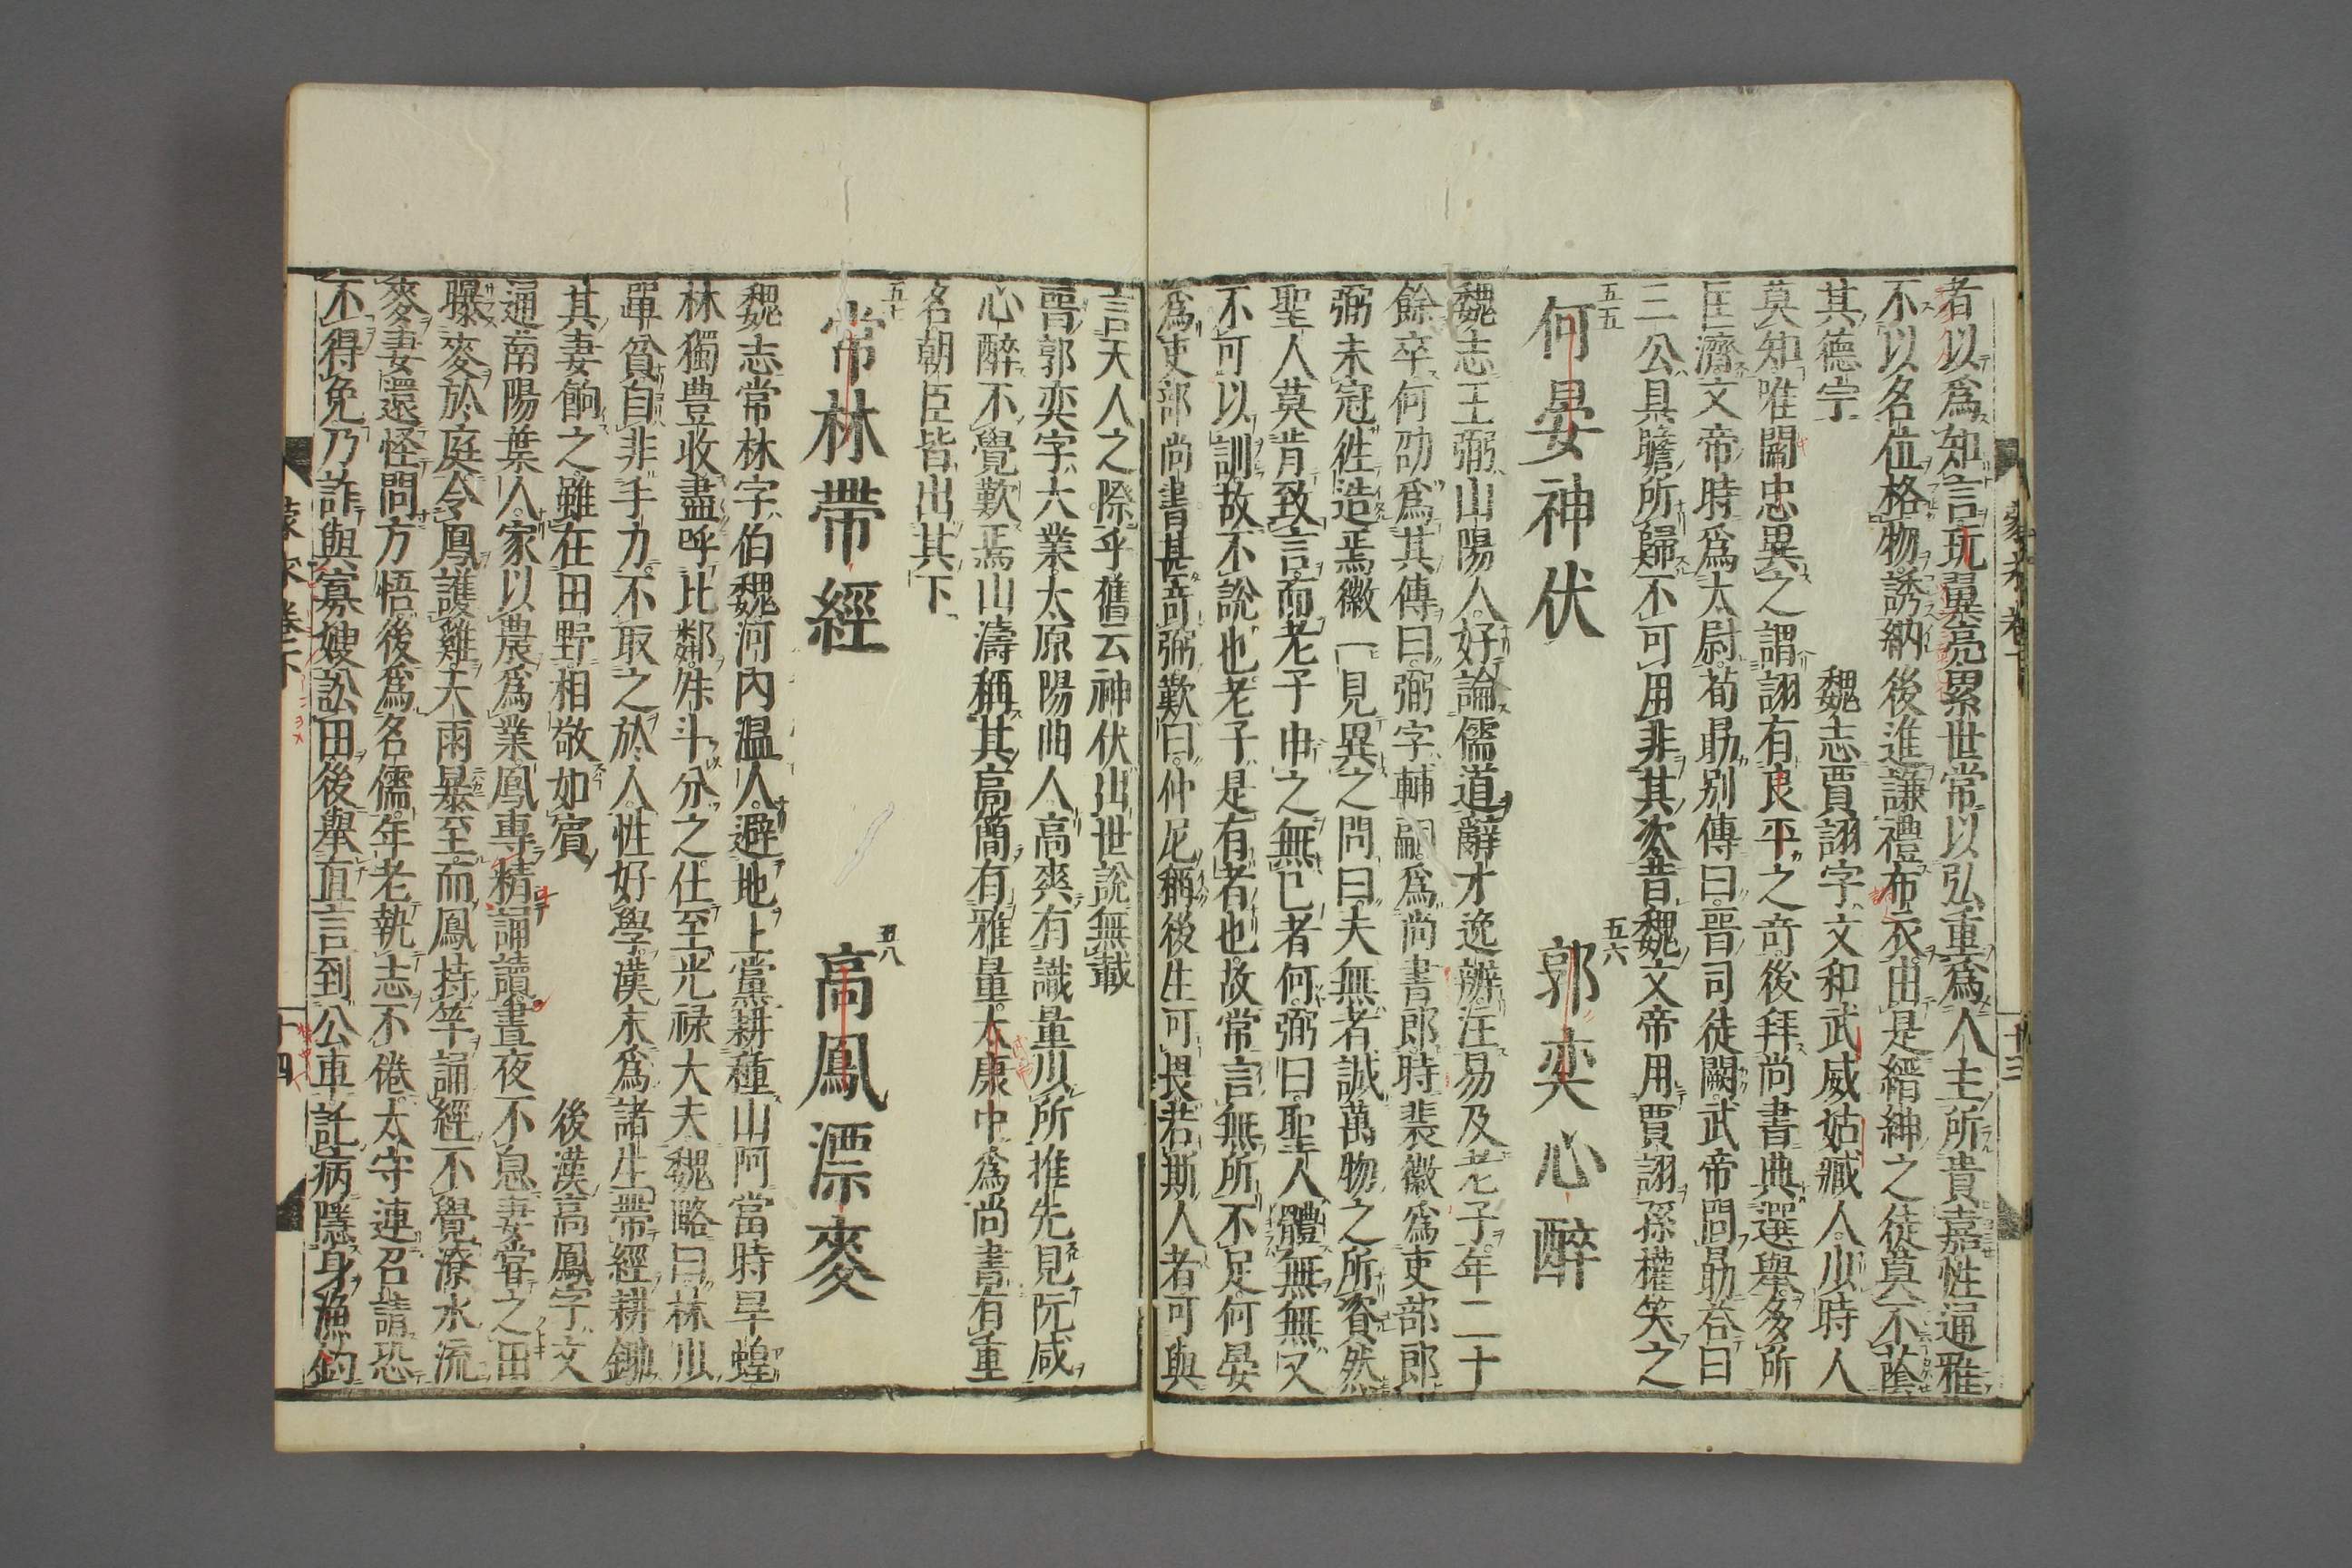 者以爲知言玩翼亮累世常以弘重爲人主所貴嘉性通雅
不以名位格物誘納後進謙禮布衣由是縉紳之徒莫不蔭
其德宇
魏志賈詡字文和武威姑臧人少時人
莫知唯閻忠異之謂詡有良平之竒後拜尚書典選舉多所
匡濟文帝時爲太尉荀勗别傳曰晋司徒闕武帝問勗荅曰
三公具瞻所歸不可用非其次昔魏文帝用賈詡孫權笑之
五五
何晏神伏
五六
郭奕心醉
魏志王弼山陽人好論儒道辭才逸辨注易及老子年二十
餘卒何劭爲其傳曰弼字輔嗣爲尚書郎時裴徽爲吏部郎
弼未冠徃造焉徽一見異之問曰夫無者誠萬物之所資然
聖人莫肯致言而老子申之無已者何弼曰聖人體無無又
不可以訓故不說也老子是有者也故常言無所不足何晏
爲吏部尚書甚竒弼歎曰仲尼稱後生可畏若斯人者可與
言天人之際乎舊云神伏出世說無載
晋郭奕字大業太原陽曲人高爽有識量少所推先見阮咸
心醉不覺歎焉山濤稱其高簡有雅量太康中爲尚書有重
名朝臣皆出其下
五七
常林帶經
五八
高鳳漂麥
魏志常林字伯魏河內温人避地上黨耕種山阿當時旱蝗
林獨豊收盡呼比鄰舛斗分之仕至光禄大夫魏略曰林少
單貧自非手力不取之於人性好學漢末爲諸生帶經耕鋤
其妻餉之雖在田野相敬如賓
後漢高鳳字文
通南陽葉人家以農爲業鳳專精誦讀晝夜不息妻甞之田
曝麥於庭令鳳護雞天雨暴至而鳳持竿誦經不覺潦水流
麥妻還怪問方悟後爲名儒年老執志不倦太守連召請恐
不得免乃詐與寡嫂訟田後舉直言到公車託病隱身漁釣
蒙求卷下
十三
蒙求卷下
十四